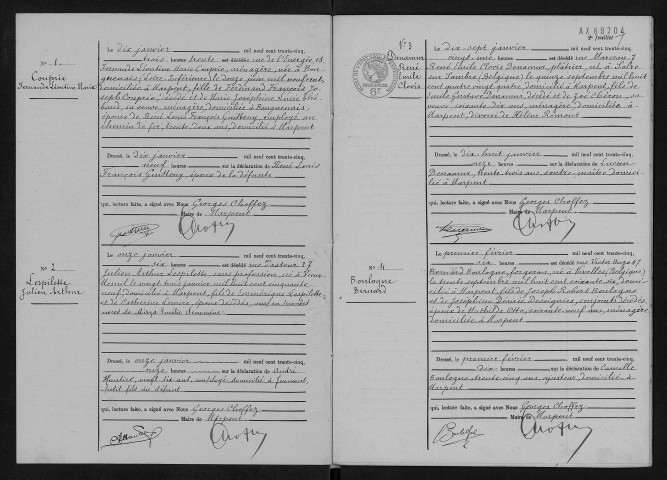 N° 1
Couprie
Fernande Léontine Marie
Le dix janvier mil neuf cent trente-cinq,
trois heures trente est décédée rue de l'Energie 18,
Fernande Léontine Marie Couprie, ménagère, née à
(Loire Inférieure) le douze juin mil neuf cent
domiciliée à Marpent, fille de Ferdinand François Jo-
seph Couprie, décédé et de Marie Joséphine Louise
sa veuve, ménagère, domiciliée à Bouguenais,
épouse de René Louis François Guitteny employé au
chemin de fer, trente deux ans, domicilié à Marpent
Dressé, le dix janvier mil neuf cent trente-cinq,
neuf heures sur la déclaration de René Louis
François Guitteny, époux de la défunte
qui, lecture faite, a signé avec Nous Georges Choffez
Maire de Marpent
N° 2
Lespilette
Julien Arthur
Le onze janvier mil neuf cent trente-cinq,
six heures est décédé rue Pasteur 17
Julien Arthur Lespilette sans profession né à
le vingt trois janvier mil huit cent cinquante
neuf domicilié à Marpent, fils de Lespilette
et de Catherine époux décédés,
de Marie Emilie
Dressé, le onze janvier mil neuf cent trente-cinq,
onze heures sur la déclaration de André
vingt six ans, employé domicilié à Jeumont,
petit fils du défunt
qui, lecture faite, a signé avec Nous Georges Choffez
Maire de Marpent
AX 69204
2e feuillet
N° 3
Denamur
René
Emile
Clovis
Le dix sept janvier mil neuf cent trente-cinq,
vingt-une heures est décédé rue Marceau 7
René Emile Clovis Denamur, platrier, né à
sur Sambre (Belgique) le quinze septembre mil huit
cent quatre vingt quatre, domicilié à Marpent, fils de
Emile Gustave Denamur, décédé et de Zoé sa
veuve, soixante dix ans, ménagère domiciliée à
Marpent, divorcé de Hélène Rémont
Dressé, le dix huit janvier mil neuf cent trente-cinq,
onze heures sur la déclaration de Lucien
Denamur, trente trois ans, contre-maître domici-
lié à Marpent
qui, lecture faite, a signé avec Nous Georges Choffez
Maire de Marpent
N° 4
Boulogne
Bernard
Le premier février mil neuf cent trente-cinq,
six heures est décédé rue Victor Hugo 67
Bernard Boulogne, forgeron, né à Nivelles (Belgique)
le trente septembre mil huit cent soixante six, domi-
cilié à Marpent, fils de Joseph Robert Boulogne
et de Joséphine Désirée conjoints décédés,
époux de Mathilde Otto, soixante neuf ans, ménagère
domiciliée à Marpent
Dressé, le premier février mil neuf cent trente-cinq,
dix heures sur la déclaration de Camille
Boulogne, trente cinq ans, ajusteur domicilié à
Marpent
qui, lecture faite, a signé avec Nous Georges Choffez
Maire de Marpent